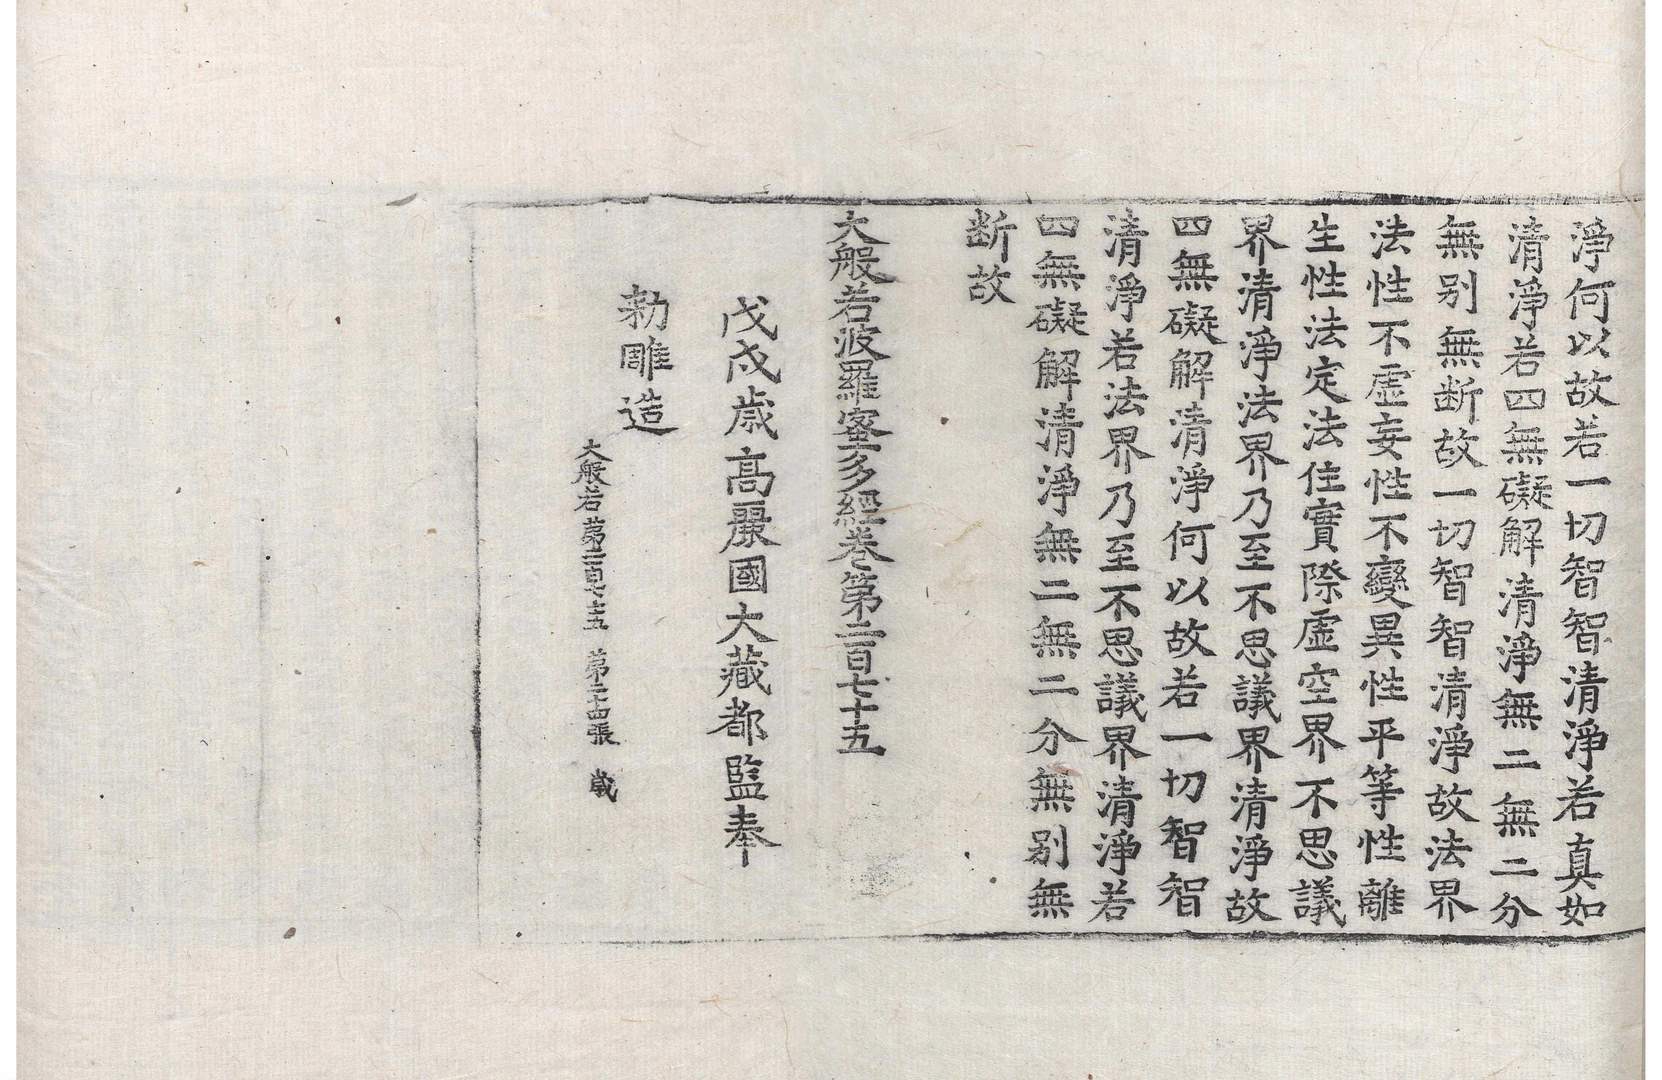 淨何以故若一切智智清淨若真如
清淨若四無礙解清淨無二無二分
無別無断故一切智智清淨故法界
法性不虛妄性不變異性平等性離
生性法定法住實際虛空界不思議
界清淨法界乃至不思議界清淨故
四無礙解清淨何以故若一切智智
清淨若法界乃至不思議界清淨若
四無礙解清淨無二無二分無別無
断故
大般若波羅蜜多經卷第二百七十五
戊戌歳高麗國大藏都監奉
勅雕造
大般若 第二百七十五 第二十四張 歳